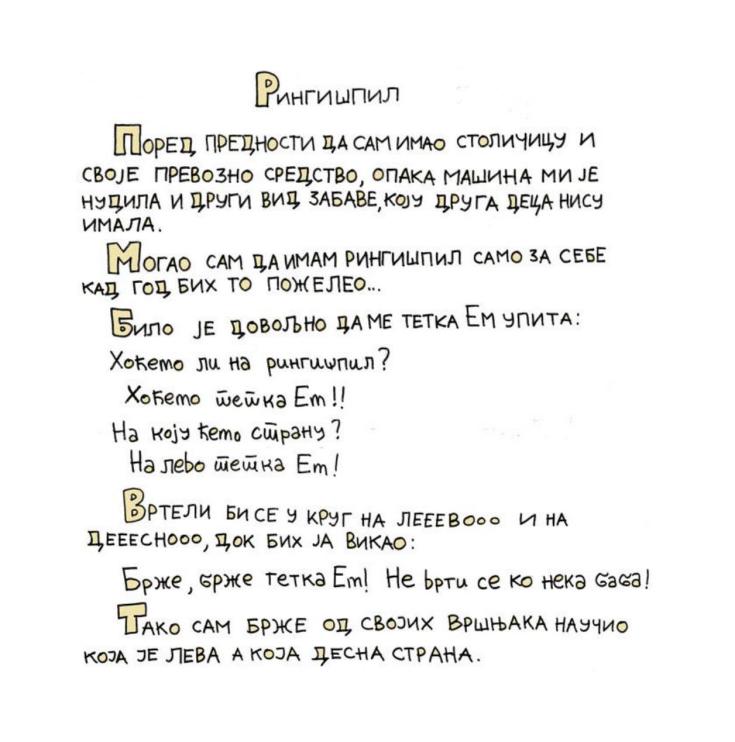 Рингишпил
Поред предности да сам имао столичицу и
своје превозно средство, опака машина ми је
нудила и други вид забаве, коју друга деца нису
имала.
Могао сам да имам рингишпил само за себе
кад год бих то пожелео...
Било је довољно да ме тетка Ем упита:
Хоћемо ли на рингишпил?
Хоћемо тетка Ем!!
На коју ћемо страну?
На лево тетка Ем!
Вртели би се у круг на лееевооо и на
дееесnооо, док бих ја викао:
Брже, брже тетка Ем! Не врти се ко нека баба!
Тако сам брже од својих вршњака научио
која је лева а која десна страна.